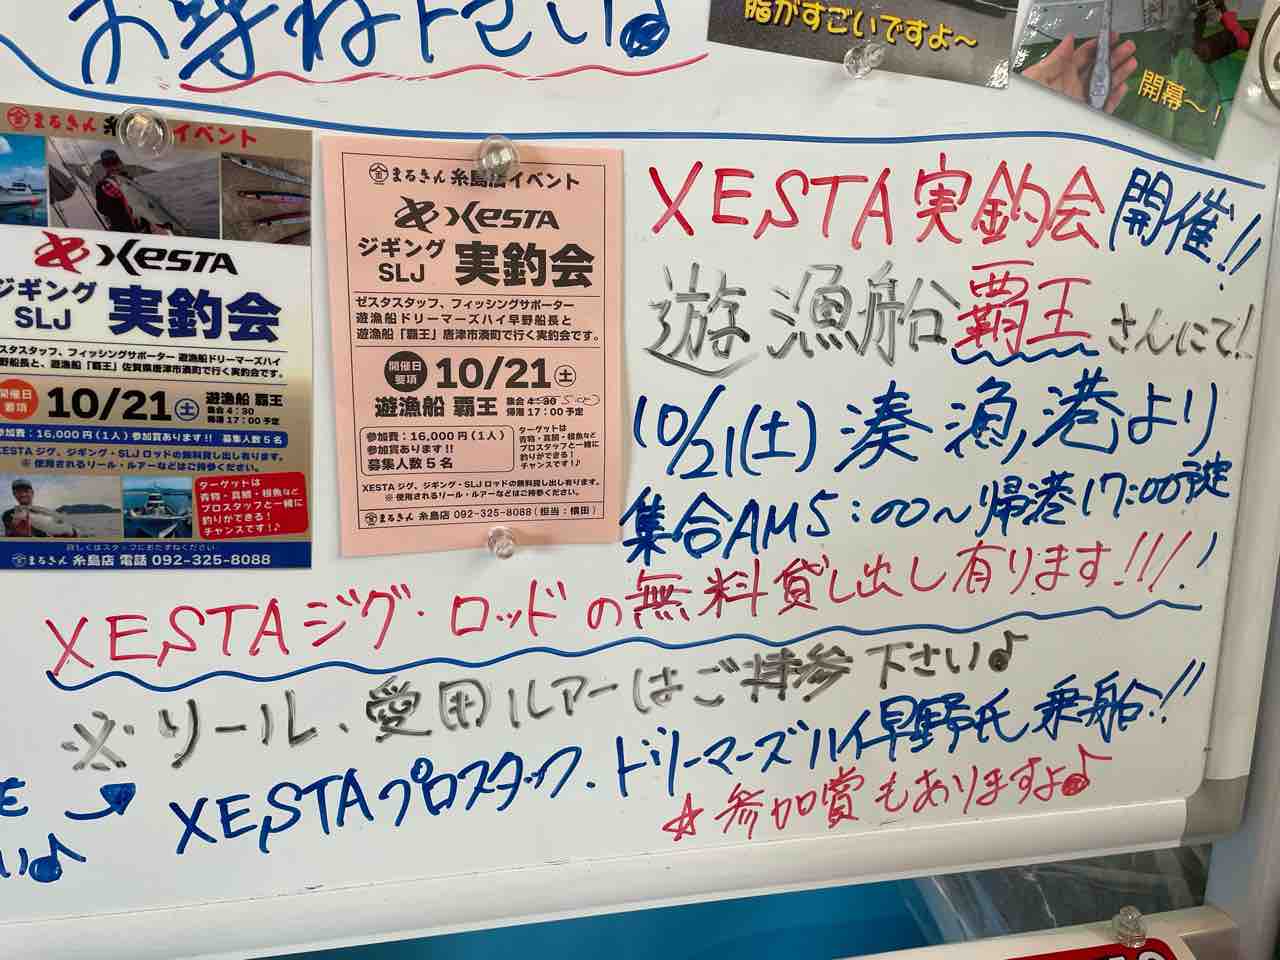 お尋ね下さい♪
脂がすごいですよ～
開幕～！
まるきん 糸 イベント
XESTA
ジギング
SLJ 実釣会
スタスタッフ、フィッシングサポーター 遊漁船ドリーマーズハイ
野船長と、遊漁船「覇王」佐賀県唐津市湊町で行く実釣会です。
開催日
要項
10/21(土)
遊漁船 覇王
集合 4:30
帰港 17:00予定
参加費：16,000円(1人) 参加賞あります!! 募集人数5名
XESTA ジグ、ジギング・SLJ ロッドの無料貸し出し有ります。
※使用されるリール・ルアーなどはご持参ください。
ターゲットは
青物・真鯛・根魚など
プロスタッフと一緒に
釣りができる！
チャンスです！♪
詳しくはスタッフにおたずねください
まるきん 糸島店 電話 092-325-8088
まるきん 糸島店イベント
XESTA
ジギング
SLJ 実釣会
ゼスタスタッフ、フィッシングサポーター
遊漁船ドリーマーズハイ早野船長と
遊漁船「覇王」唐津市湊町で行く実釣会です。
開催日
要項
10/21(土)
遊漁船 覇王
集合 4:30 5:00
帰港 17:00 予定
参加費：16,000円(1人)
参加賞あります!!
募集人数5名
ターゲットは
青物・真鯛・根魚など
プロスタッフと一緒に
釣りができる！
チャンスです！♪
XESTA ジグ、ジギング・SLJ ロッドの無料貸し出し有ります。
※使用されるリール・ルアーなどはご持参ください。
まるきん 糸島店 092-325-8088(担当：横田)
XESTA実釣会開催!!
遊漁船覇王さんにて!
10/21(土)湊漁港より
集合AM5:00～帰港17:00予定
XESTAジグ・ロッドの無料貸し出し有ります!!!!
※リール、愛用ルアーはご持参下さい♪
XESTAプロスタッフ・ドリーマーズハイ早野氏乗船!!
☆参加賞もありますよ♪